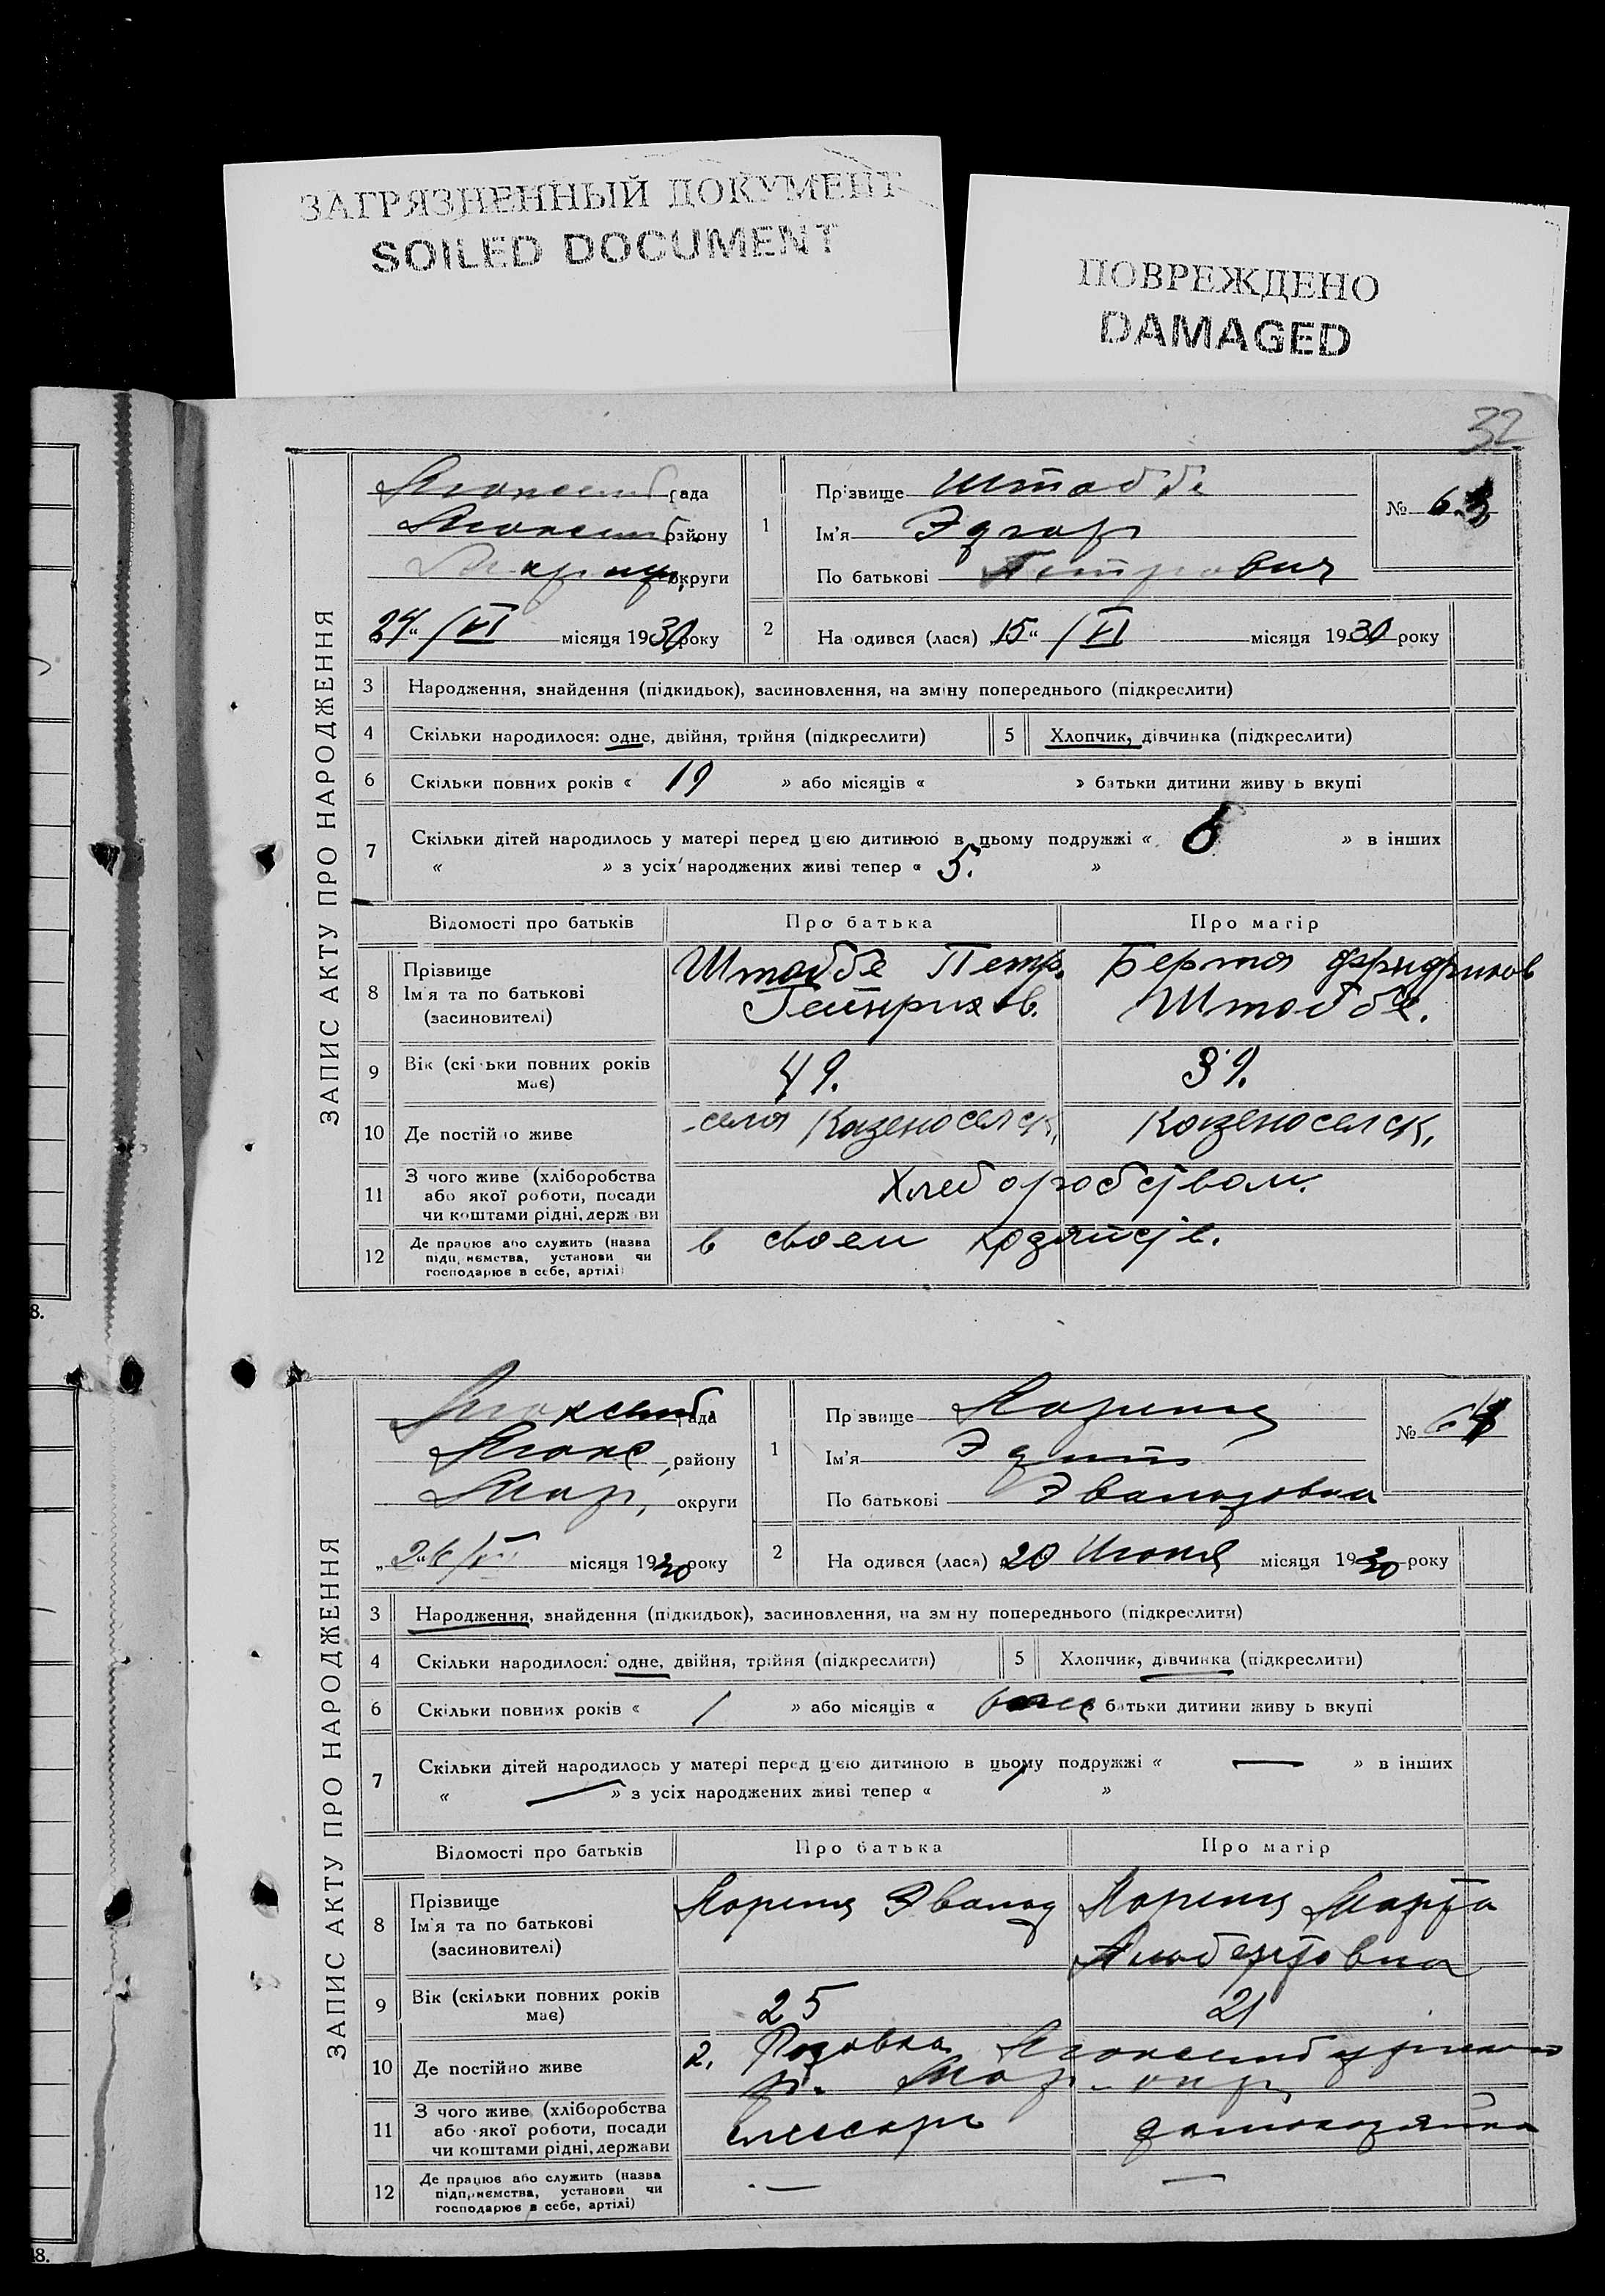 ЗАГРЯЗНЕННЫЙ ДОКУМЕНТ
SOILED DOCUMENT
ПОВРЕЖДЕНО
DAMAGED
32
ЗАПИС АКТУ ПРО НАРОДЖЕННЯ
рада
району
округи
24 "/VI місяця 1930 року
1 Прізвище Штаббе
Ім'я Эдгар
По батькові Петрович
№ 63
2 На одився (лася) „15" /VI місяця 1930 року
3 Народження, знайдення (підкидьок), засиновлення, на зміну попереднього (підкреслити)
4 Скільки народилося: одне, двійня, трійня (підкреслити) 5 Хлопчик, дівчинка (підкреслити)
6 Скільки повних років « 19 » або місяців « » батьки дитини живу ь вкупі
7 Скільки дітей народилось у матері перед цією дитиною в цьому подружжі « 6 » в інших
« » з усіх народжених живі тепер « 5. »
Відомості про батьків Про батька Про матір
8 Прізвище
Ім'я та по батькові
(засиновителі)
Штаббе Петр.
Гейнрихов.
Берта Фридрихов
Штаббе.
9 Вік (скі ьки повних років
має)
49. 39.
10 Де постійно живе села Казеносельск. Казеносельск.
11 З чого живе (хліборобства
або якої роботи, посади
чи коштами рідні, держ ви
Хлеборобством.
12 Де працює або служить (назва
підприємства, установи чи
господарює в себе, артілі
в своем хозяйстве.
8.
ЗАПИС АКТУ ПРО НАРОДЖЕННЯ
рада
району
Мар. округи
„26 /VI місяця 1930 року
1 Пр звище Лоренц
Ім'я Эдит
По батькові Эвальдовна
№ 64
2 На одився (лася) 20 Июня місяця 1930 року
3 Народження, знайдення (підкидьок), засиновлення, на зм ну попереднього (підкреслити)
4 Скільки народилося: одне, двійня, трійня (підкреслити) 5 Хлопчик, дівчинка (підкреслити)
6 Скільки повних років « 1 » або місяців « батьки дитини живу ь вкупі
7 Скільки дітей народилось у матері перед цією дитиною в цьому подружжі « — » в інших
« — » з усіх народжених живі тепер « »
Відомості про батьків Про батька Про матір
8 Прізвище
Ім'я та по батькові
(засиновителі)
Лоренц Эвальд
Лоренц Марта
Альбертовна
9 Вік (скільки повних років
має)
25 21
10 Де постійно живе
Розовка Люксембургского
р. Мар. окр.
11 З чого живе (хліборобства
або якої роботи, посади
чи коштами рідні, держави
слесарь домохозяйка
12 Де працює або служить (назва
підприємства, установи чи
господарює в себе, артілі)
— —
8.